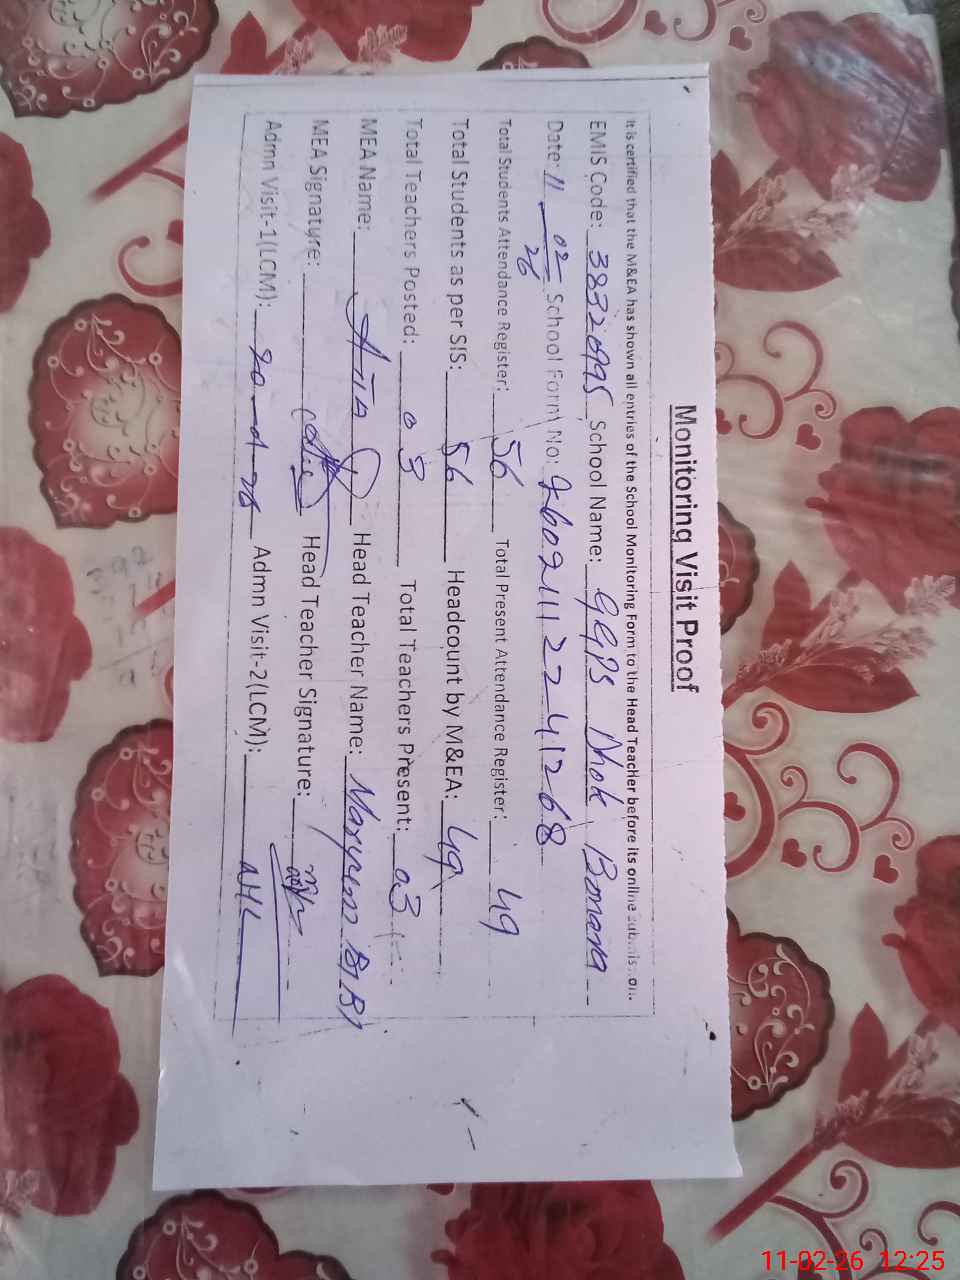 Monitoring Visit Proof
It is certified that the M&EA has shown all entries of the School Monitoring Form to the Head Teacher before its online submission.
EMIS Code: 38320995 School Name: GGPS Dhok Bomara
Date: 11 02 26 School Form No: 2602111224 1268
Total Students Attendance Register: 56 Total Present Attendance Register: 49
Total Students as per SIS: 56 Headcount by M&EA: 49
Total Teachers Posted: 03 Total Teachers Present: 03
MEA Name: Head Teacher Name: Maryum BiBi
MEA Signature: Head Teacher Signature:
Admn Visit-1(LCM): Admn Visit-2(LCM):
11-02-26 12:25